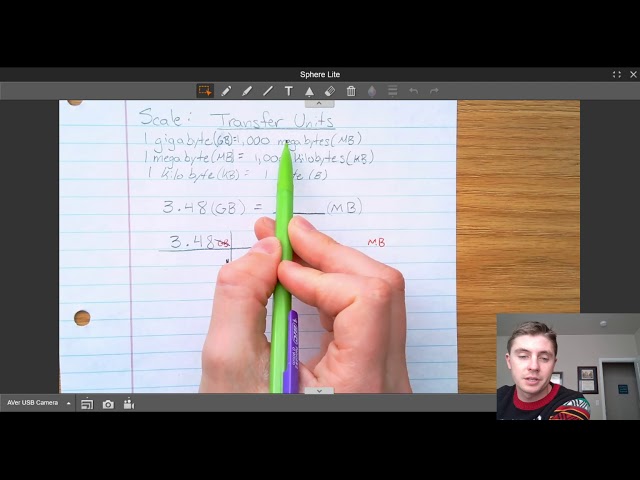 Sphere Lite
T
Scale: Transfer Units
1 gigabyte (GB) = 1,000 megabytes (MB)
1 megabyte (MB) = 1,000 kilobytes (KB)
1 kilobyte (KB) = 1 (B)
3.48 (GB) = ______ (MB)
3.48 GB MB
AVer USB Camera